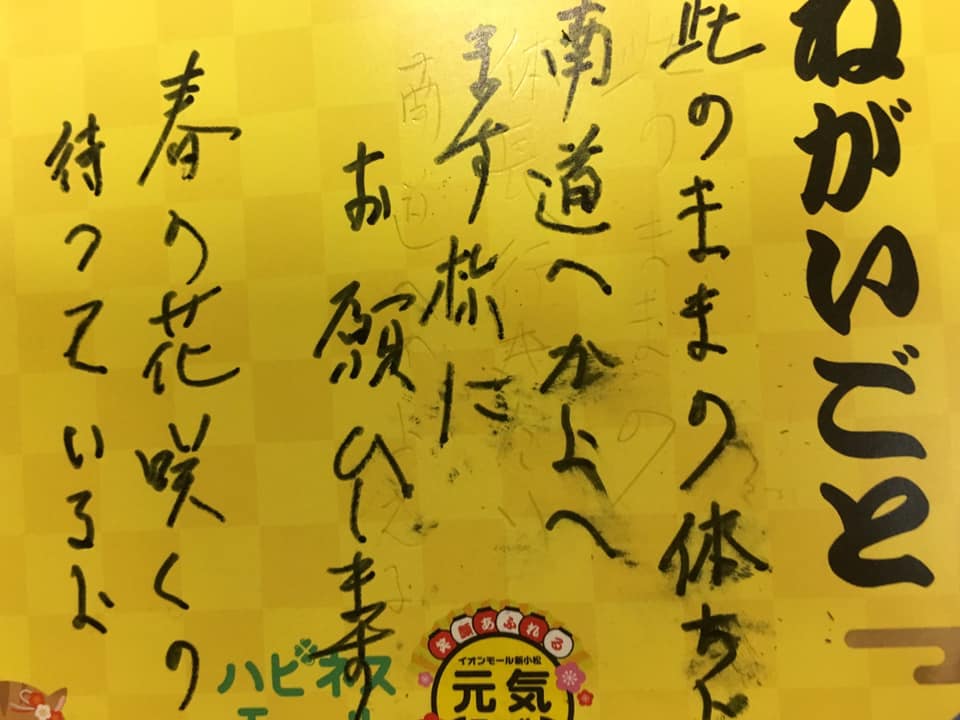 ねがいごと
此のままの体ちょ
南道へかよへ
ます様に
お願ひします
春の花咲くの
待っているよ
ハピネス
笑顔あふれる
イオンモール新小松
元気